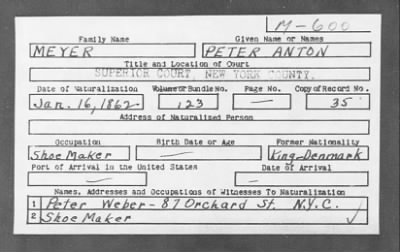 M-600
Family Name Given Name or Names
MEYER PETER ANTON
Title and Location of Court
SUPERIOR COURT, NEW YORK COUNTY.
Date of Naturalization Volume or Bundle No. Page No. Copy of Record No.
Jan. 16, 1862 123 — 35
Address of Naturalized Person
Occupation Birth Date or Age Former Nationality
Shoe Maker — King Denmark
Port of Arrival in the United States Date of Arrival
— —
Names, Addresses and Occupations of Witnesses To Naturalization
1 Peter Weber - 87 Orchard St. N.Y.C.
2 Shoe Maker ✓